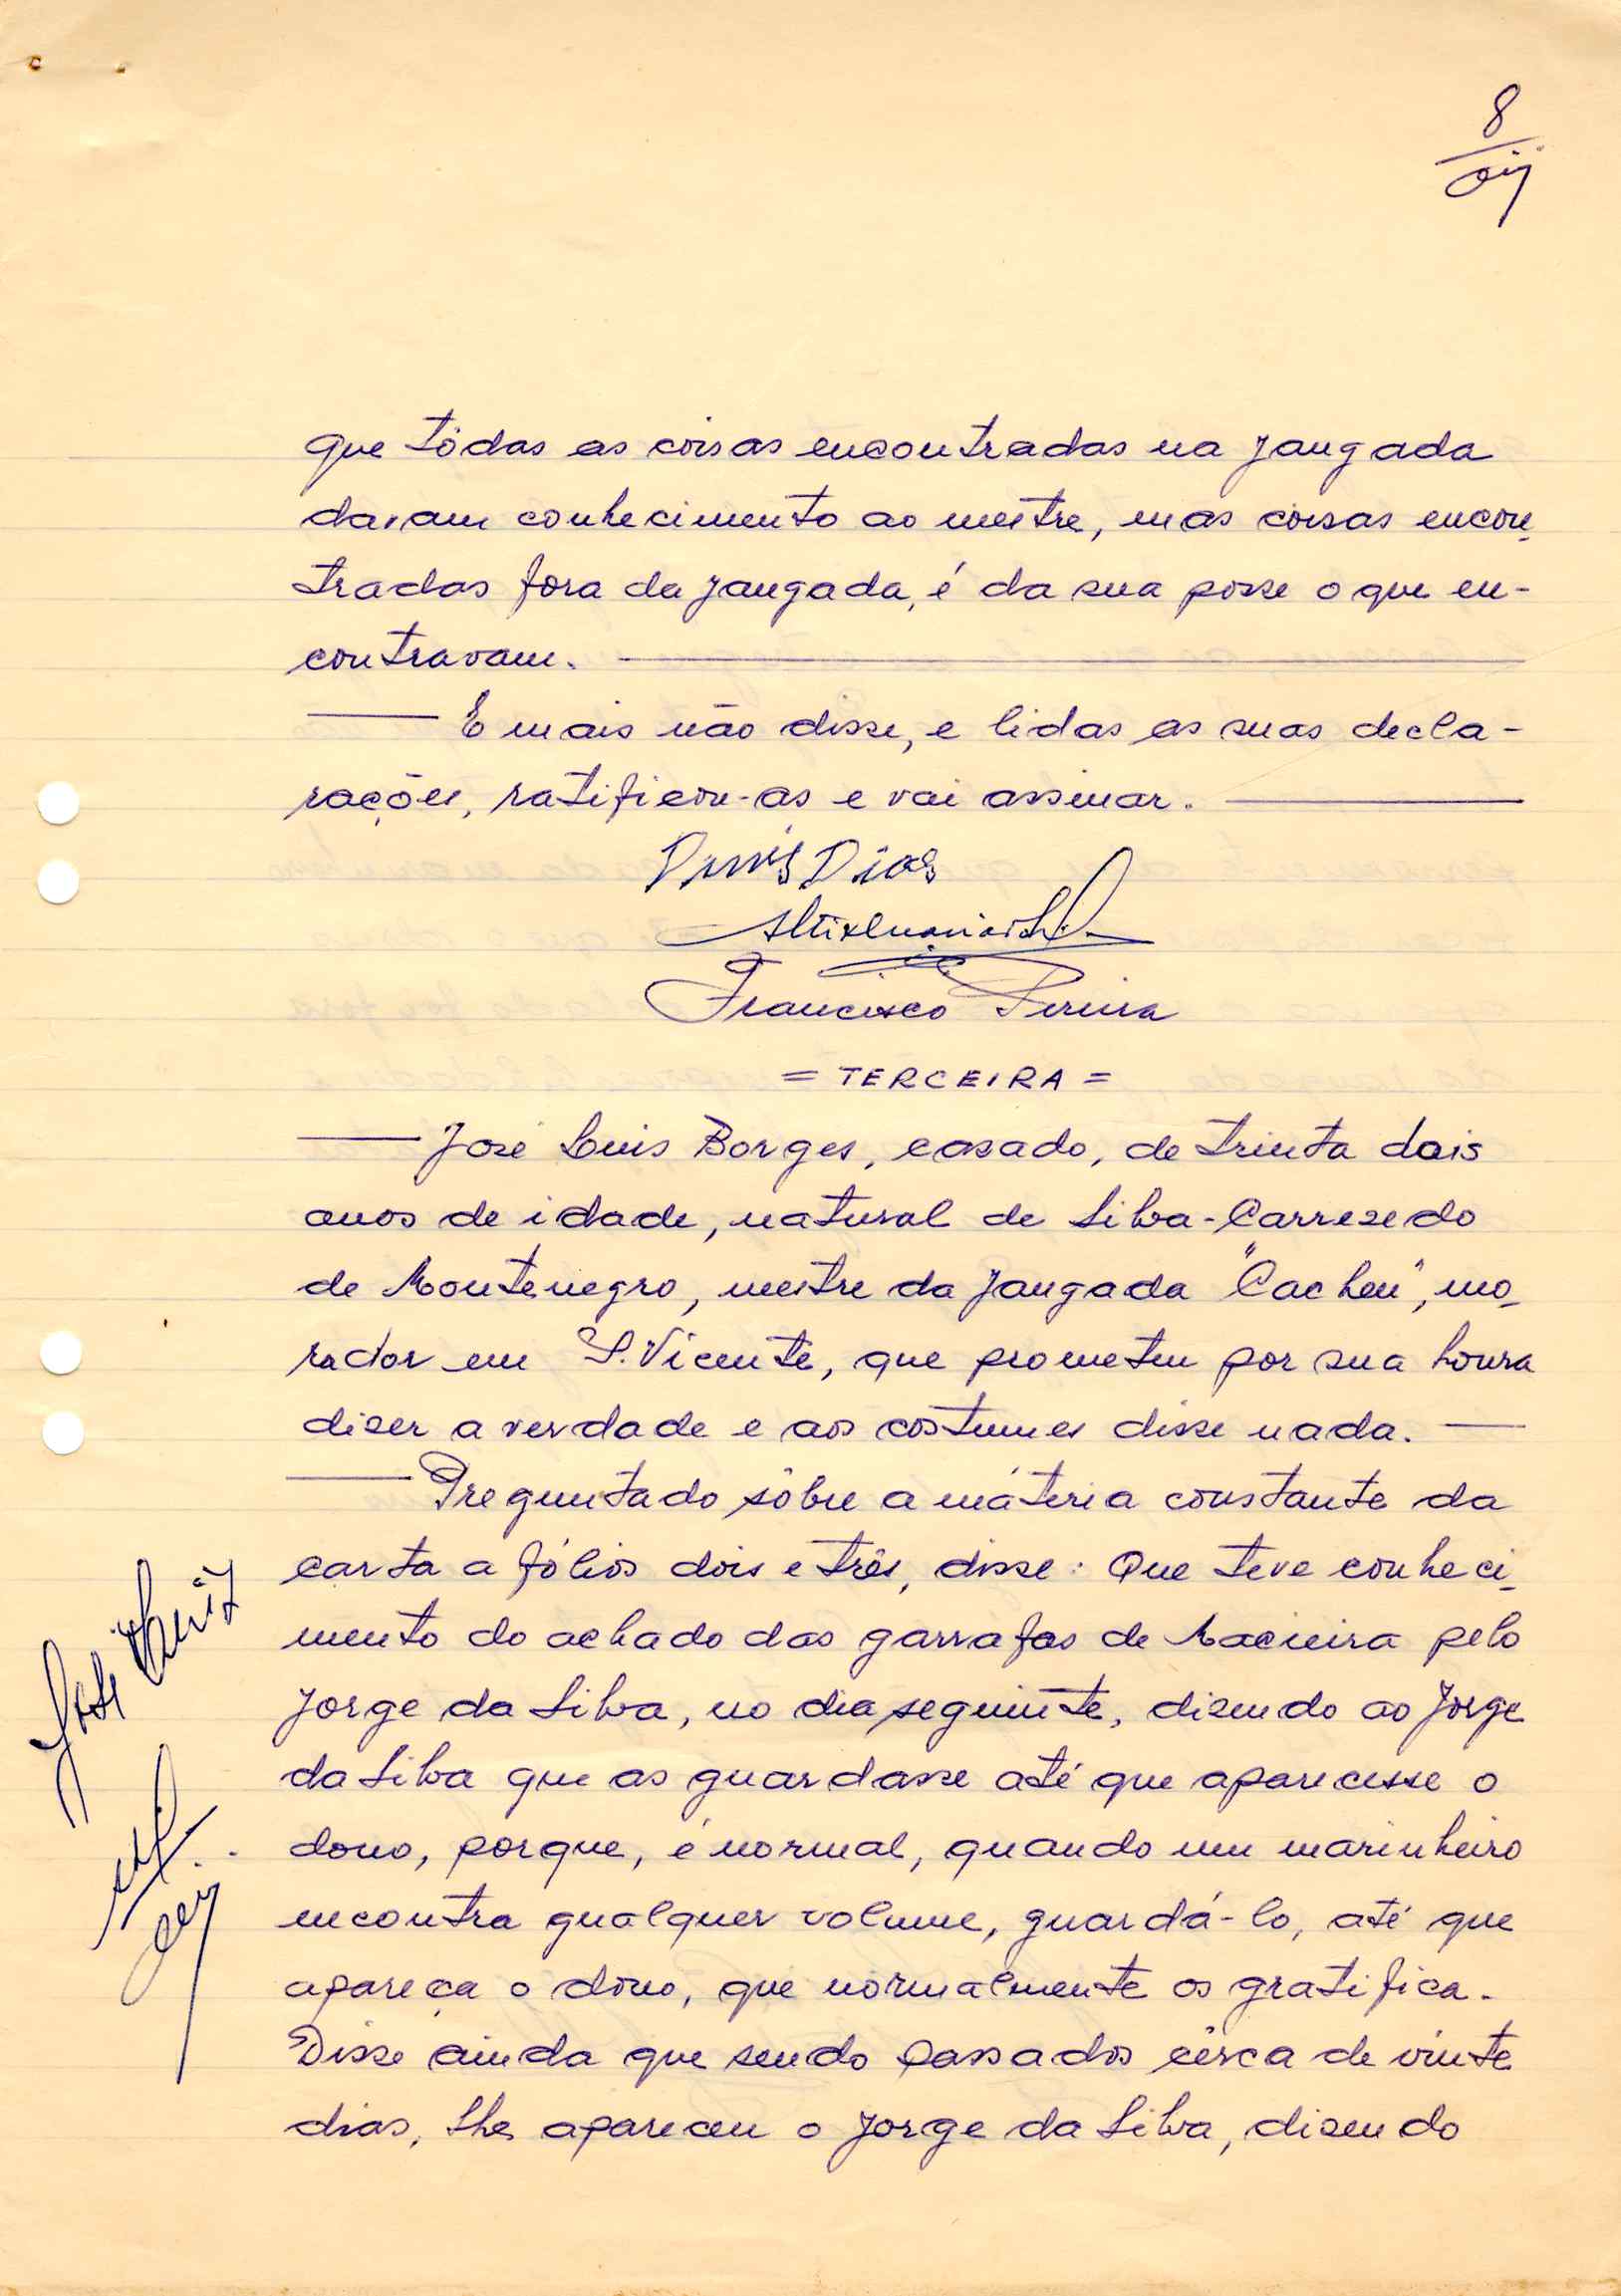 8
que tôdas as coisas encontradas na jangada
davam conhecimento ao mestre, mas coisas encon-
tradas fora da jangada, é da sua posse o que en-
contravam.
E mais não disse, e lidas as suas decla-
rações, ratificou-as e vai assinar.
Dinis Dias
Francisco Pereira
= TERCEIRA =
José Luis Borges, casado, de trinta dois
anos de idade, natural de Silva-Carrezedo
de Montenegro, mestre da jangada "Cacheu", mo-
rador em S. Vicente, que prometeu por sua honra
dizer a verdade e aos costumes disse nada.
Preguntado sôbre a máteria constante da
carta a fólios dois e três, disse: Que teve conheci-
mento do achado das garrafas de Macieira pelo
Jorge da Silva, no dia seguinte, dizendo ao Jorge
da Silva que as guardasse até que aparecesse o
dono, porque, é normal, quando um marinheiro
encontra qualquer volume, guardá-lo, até que
apareça o dono, que normalmente os gratifica.
Disse ainda que sendo passados cêrca de vinte
dias, lhe apareceu o Jorge da Silva, dizendo
José Luis